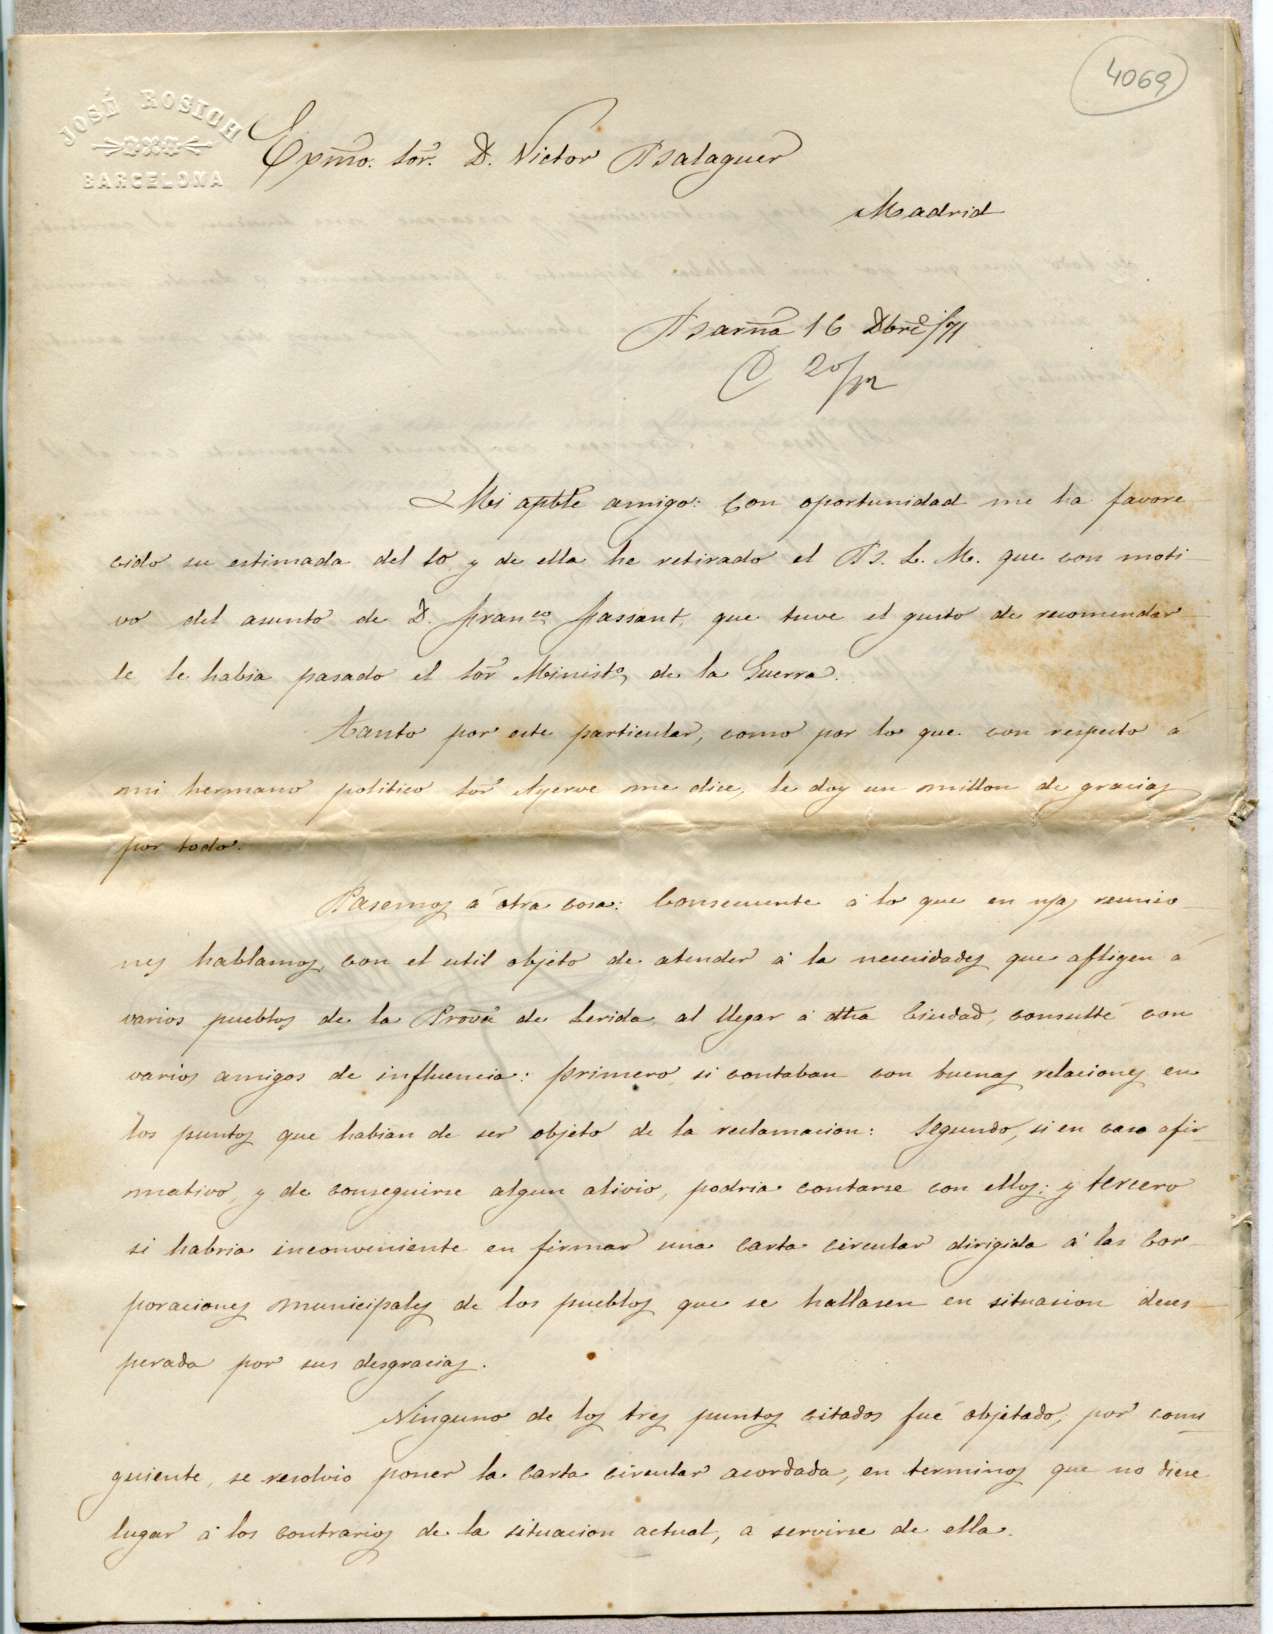 4069
JOSÉ ROSICH
BARCELONA
Exmo. Sor. D. Victor Balaguer
Madrid
Barna 16 Dbre /71
C 20/12
Mi apble amigo: Con oportunidad me ha favore
cido su estimada del 10 y de ella he retirado el B. L. M. que con moti
vo del asunto de D. Franco Passant, que tuve el gusto de recomendar
le le habia pasado el Sor Ministo, de la Guerra.
Tanto por este particular, como por lo que con respecto á
mi hermano politico Sor Ayerve me dice, le doy un millon de gracias
por todo.
Pasemos á otra cosa: Consecuente á lo que en nas reunio
nes hablamos, con el util objeto de atender á la necesidades que afligen á
varios pueblos de la Prova de Lerida, al llegar á dha Ciudad, consulté con
varios amigos de influencia: primero, si contaban con buenas relaciones en
los puntos que habian de ser objeto de la reclamacion: Segundo, si en caso afir
mativo, y de conseguirse algun alivio, podria contarse con ellos: y tercero
si habria inconveniente en firmar una carta circular dirigida á las Cor
poraciones municipales de los pueblos que se hallasen en situacion deses
perada por sus desgracias.
Ninguno de los tres puntos citados fué objetado, por consi
guiente, se resolvio poner la carta circular acordada, en terminos que no diese
lugar á los contrarios de la situacion actual, a servirse de ella.